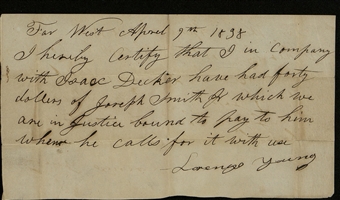 Far West April 9th 1838
I hereby Certify that I in Company
with Isaac Decker have had forty
dollars of Joseph Smith Jr which we
are in Justice bound to pay to him
when he calls for it with use
Lorenzo Young